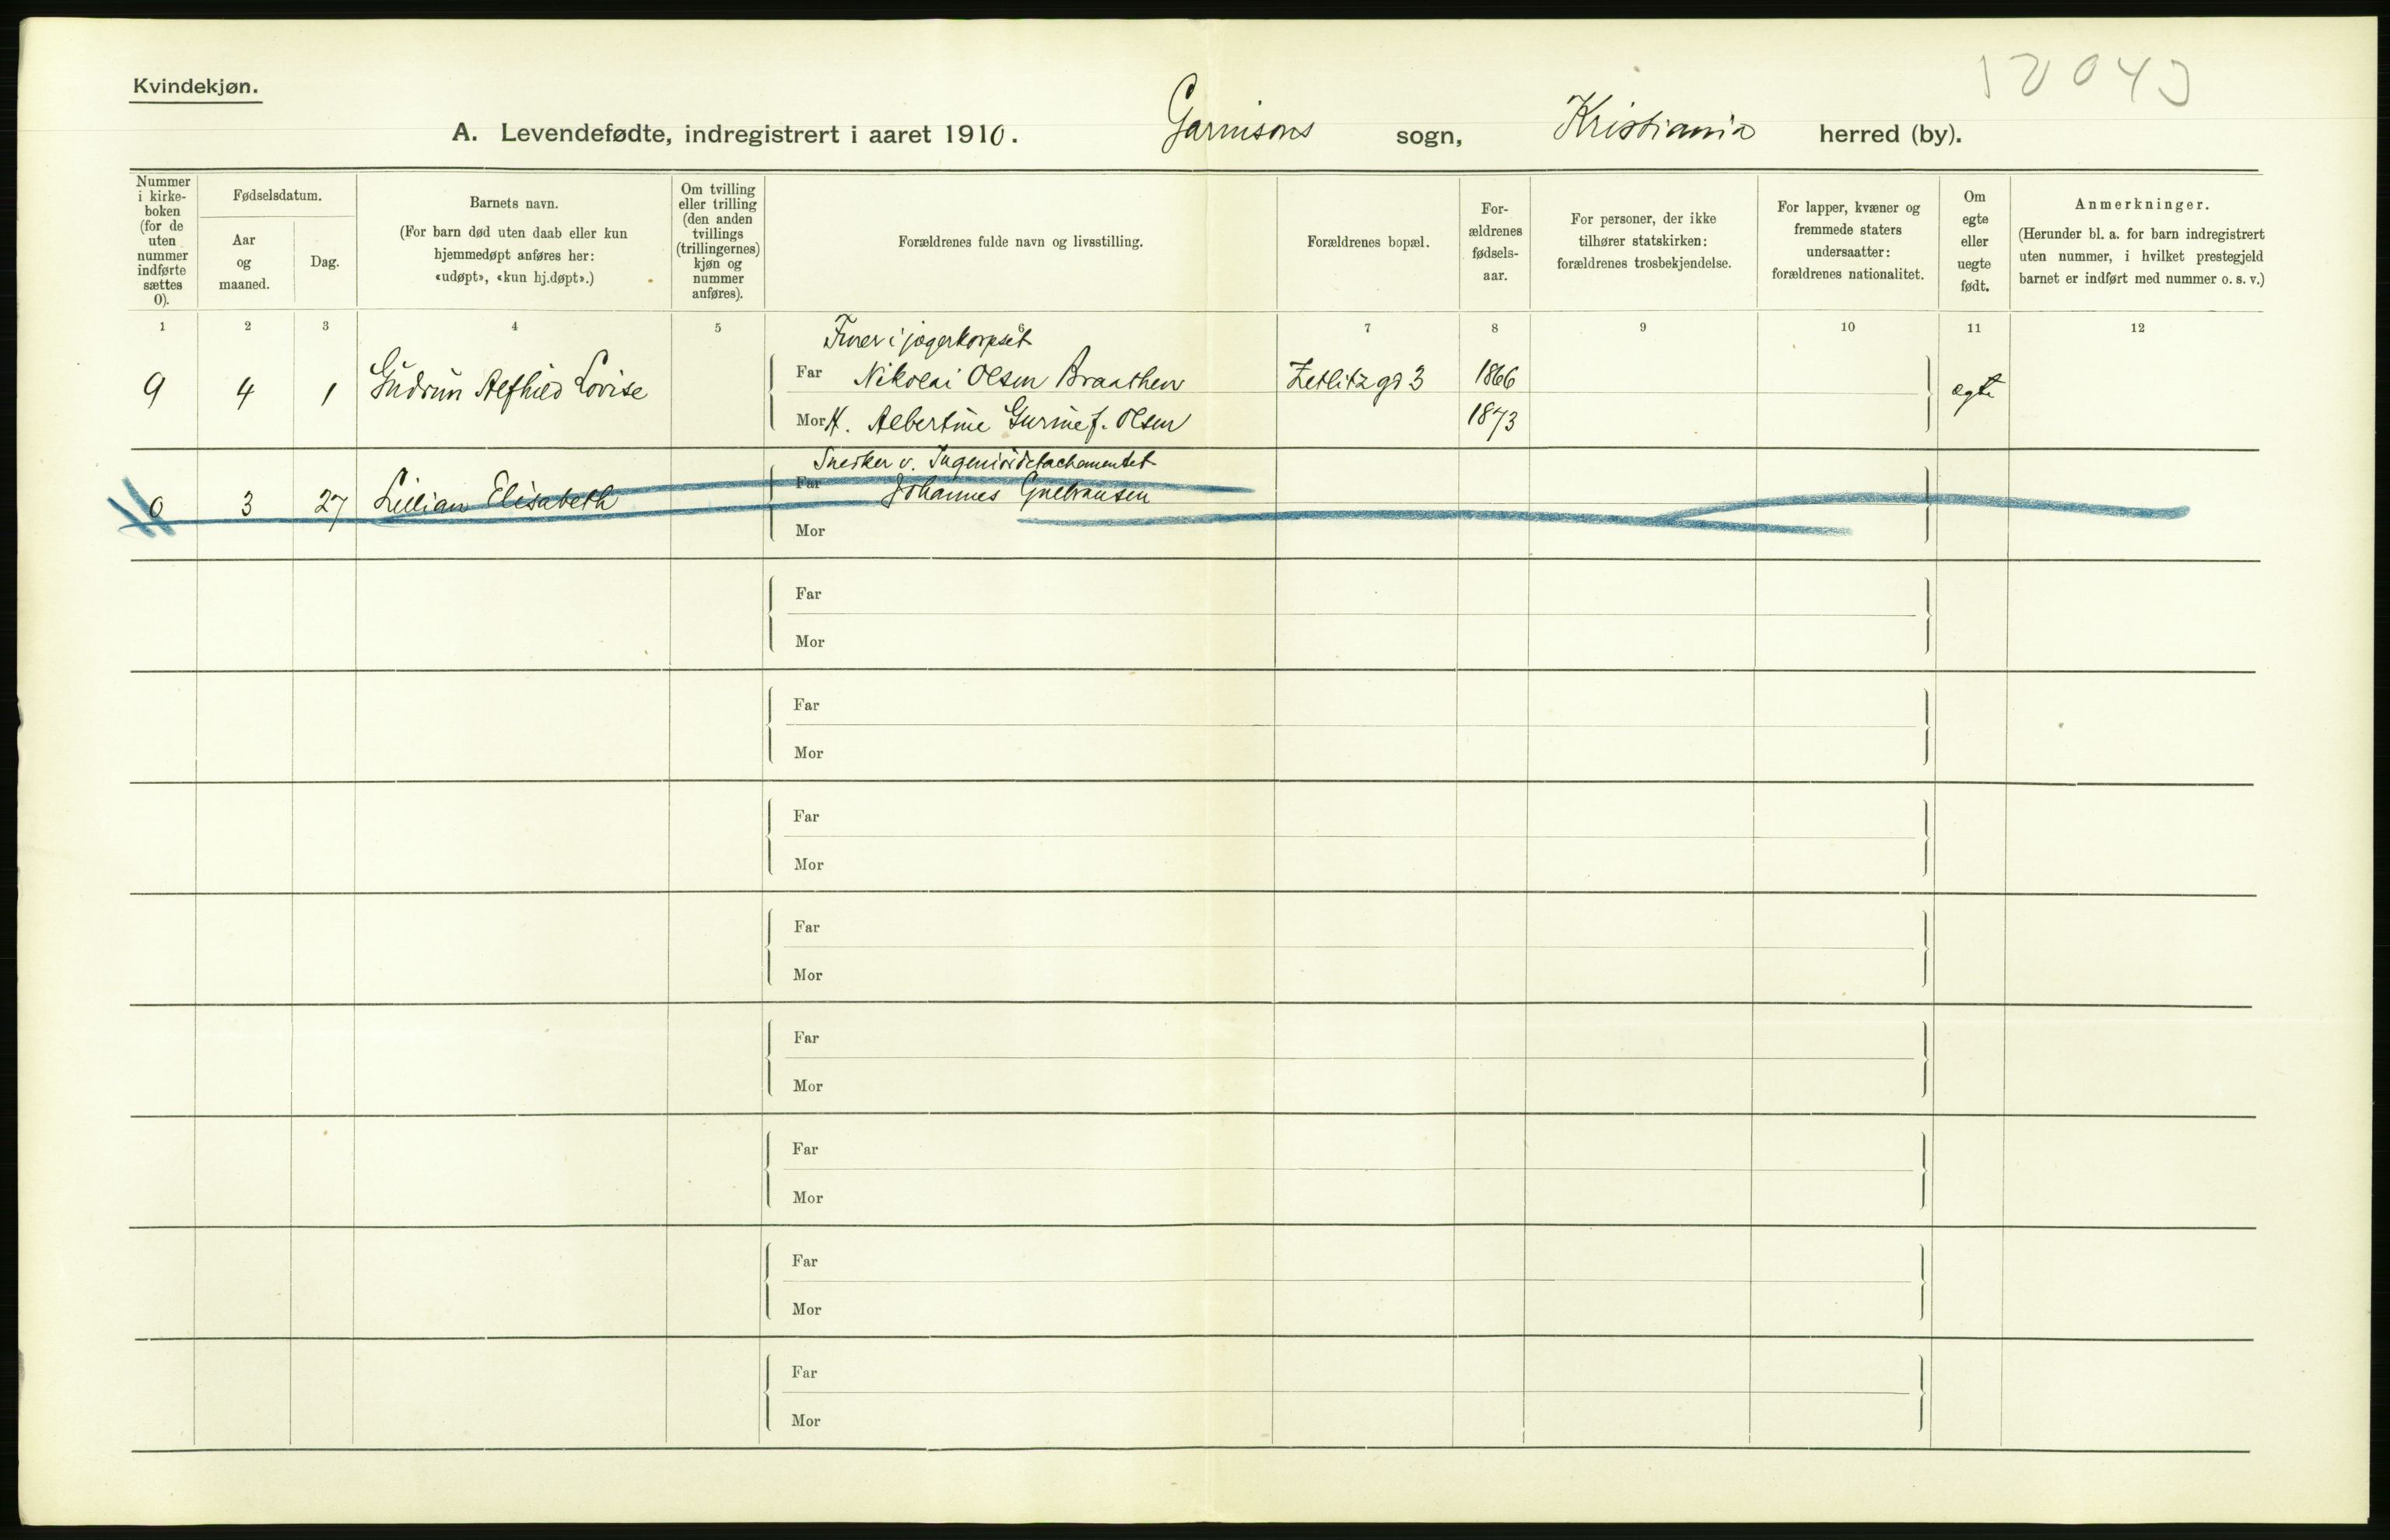 Kvindekjøn.
12043
A. Levendefødte, indregistrert i aaret 1910. Garnisons sogn, Kristiania herred (by).
Nummer i kirke-boken (for de uten nummer indførte sættes 0).
Fødselsdatum.
Aar og maaned.
Dag.
Barnets navn.
(For barn død uten daab eller kun hjemmedøpt anføres her: «udøpt», «kun hj.døpt».)
Om tvilling eller trilling (den anden tvillings (trillingernes) kjøn og nummer anføres).
Forældrenes fulde navn og livsstilling.
Forældrenes bopæl.
For-ældrenes fødsels-aar.
For personer, der ikke tilhører statskirken: forældrenes trosbekjendelse.
For lapper, kvæner og fremmede staters undersaatter: forældrenes nationalitet.
Om egte eller uegte født.
Anmerkninger.
(Herunder bl. a. for barn indregistrert uten nummer, i hvilket prestegjeld barnet er indført med nummer o. s. v.)
1 2 3 4 5 6 7 8 9 10 11 12
Furer i jægerkorpset
9 4 1 Gudrun Alfhild Lovise Far Nikolai Olsen Braathen Zetlitzgd 3 1866 egte
Mor H. Albertine Gurine f. Olsen 1873
Snedker v. Ingeniørdetachementet
0 3 27 Lillian Elisabeth Far Johannes Gulbransen
Mor
Far
Mor
Far
Mor
Far
Mor
Far
Mor
Far
Mor
Far
Mor
Far
Mor
Far
Mor